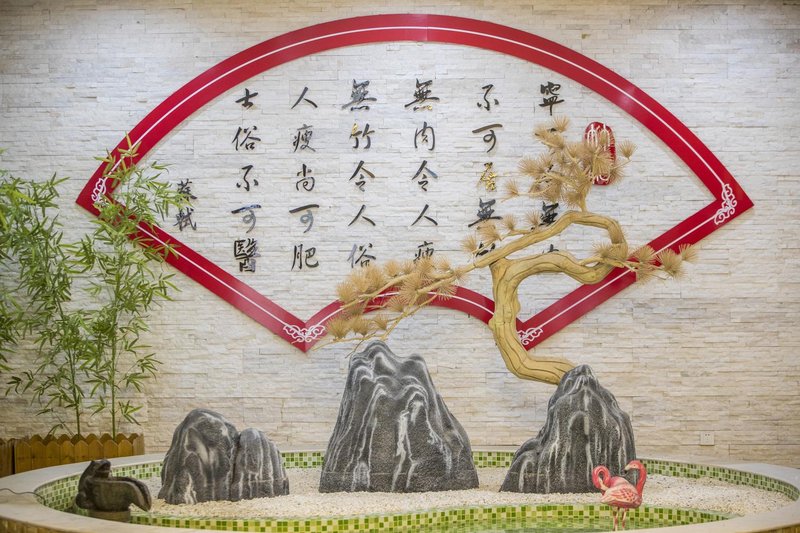 寧無
不可居無竹
無肉令人瘦
無竹令人俗
人瘦尚可肥
士俗不可醫
蘇軾